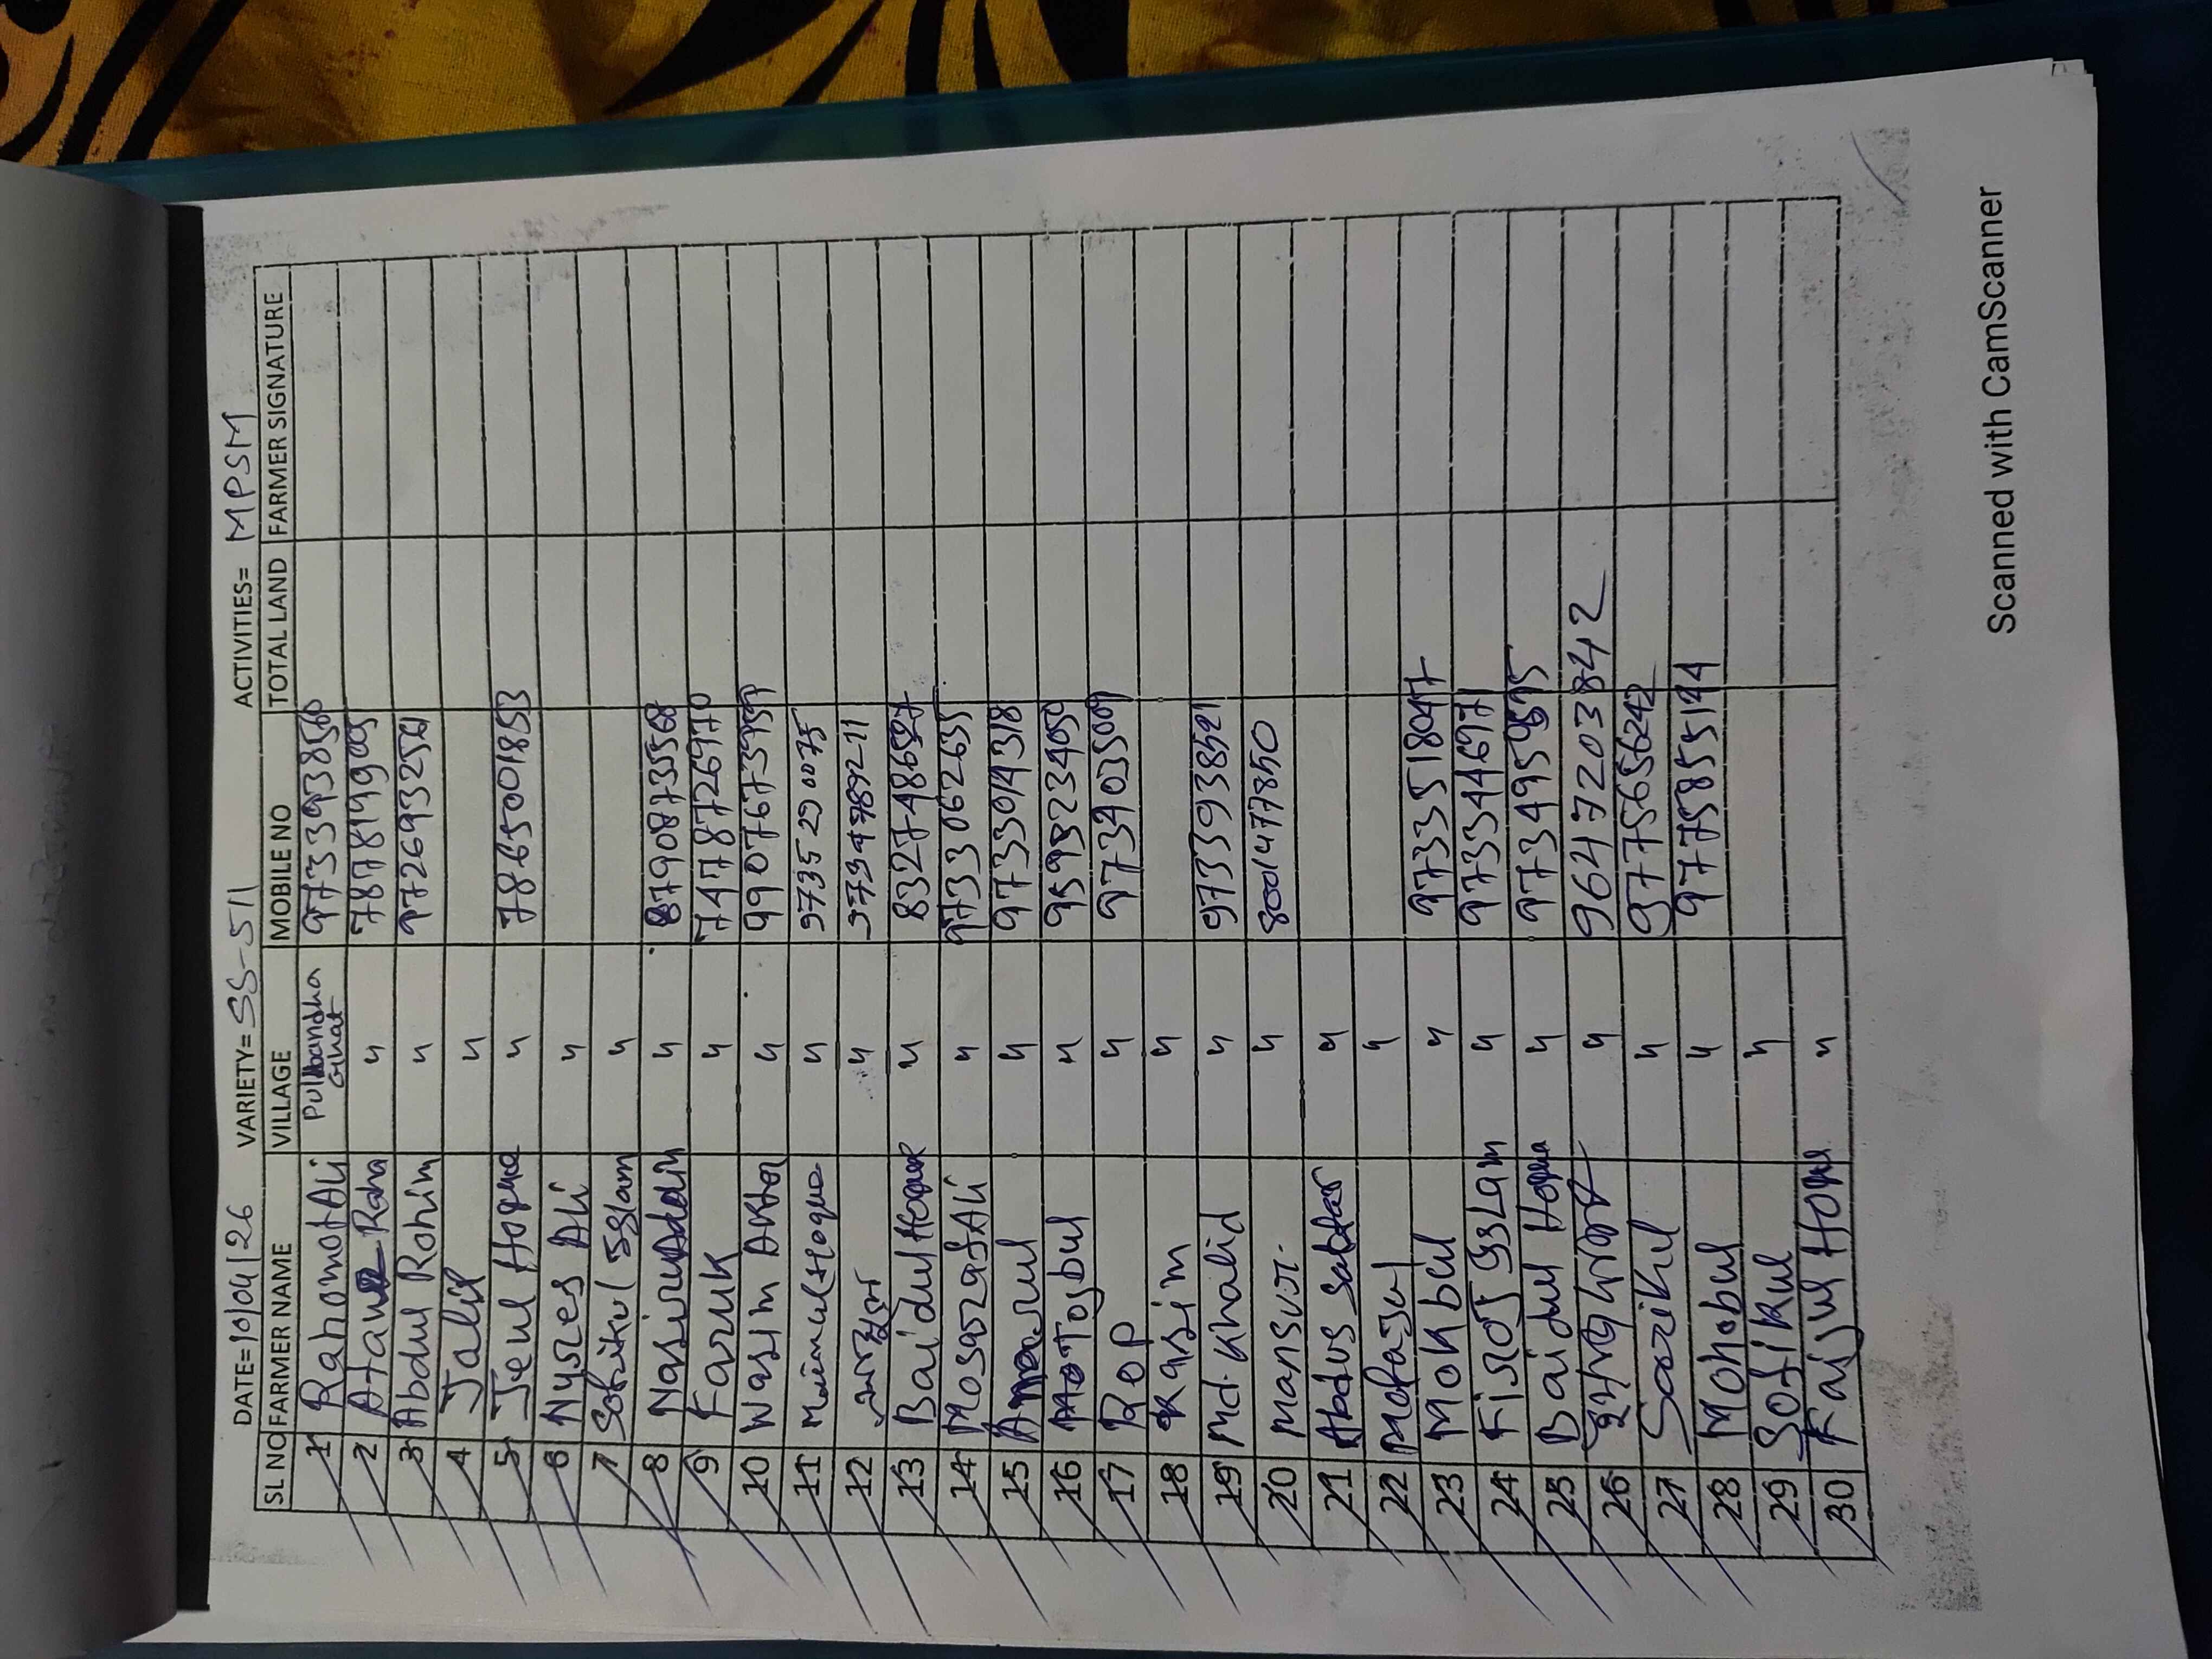 DATE=10/04/26 VARIETY=SS-511 ACTIVITIES= MPSM
SL NO FARMER NAME VILLAGE MOBILE NO TOTAL LAND FARMER SIGNATURE
1 Rahomot Ali Pullbandha Ghat 9733938560
2 Ataur Raha " 7878199005
3 Abdul Rohim " 9726932561
4 Jalil "
5 Jeul Hoque " 7865001853
6 Nysres Ali "
7 Sofikul Islam "
8 Nasiruddin " 8790873556
9 Faruk " 7478726970
10 Wasim Aktar " 9907673959
11 Mainul Hoque " 9735290075
12 " 9734789211
13 Baidul Hoque " 8327486527
14 Mosaraf Ali " 9733062635
15 " 9733014318
16 Motojbul " 9593234050
17 Rop " 9734035009
18 Kasim "
19 Md. Khalid " 9733938521
20 Mansur. " 8001477850
21 Abdus Sattar "
22 Mofajul "
23 Mokbul " 9733518047
24 Firoj Islam " 9733446971
25 Baidul Hoque " 9734959595
26 " 9647203842
27 Sarikul " 9775656242
28 Mohobul " 9775855144
29 Sofikul "
30 Faijul Hoque "
Scanned with CamScanner